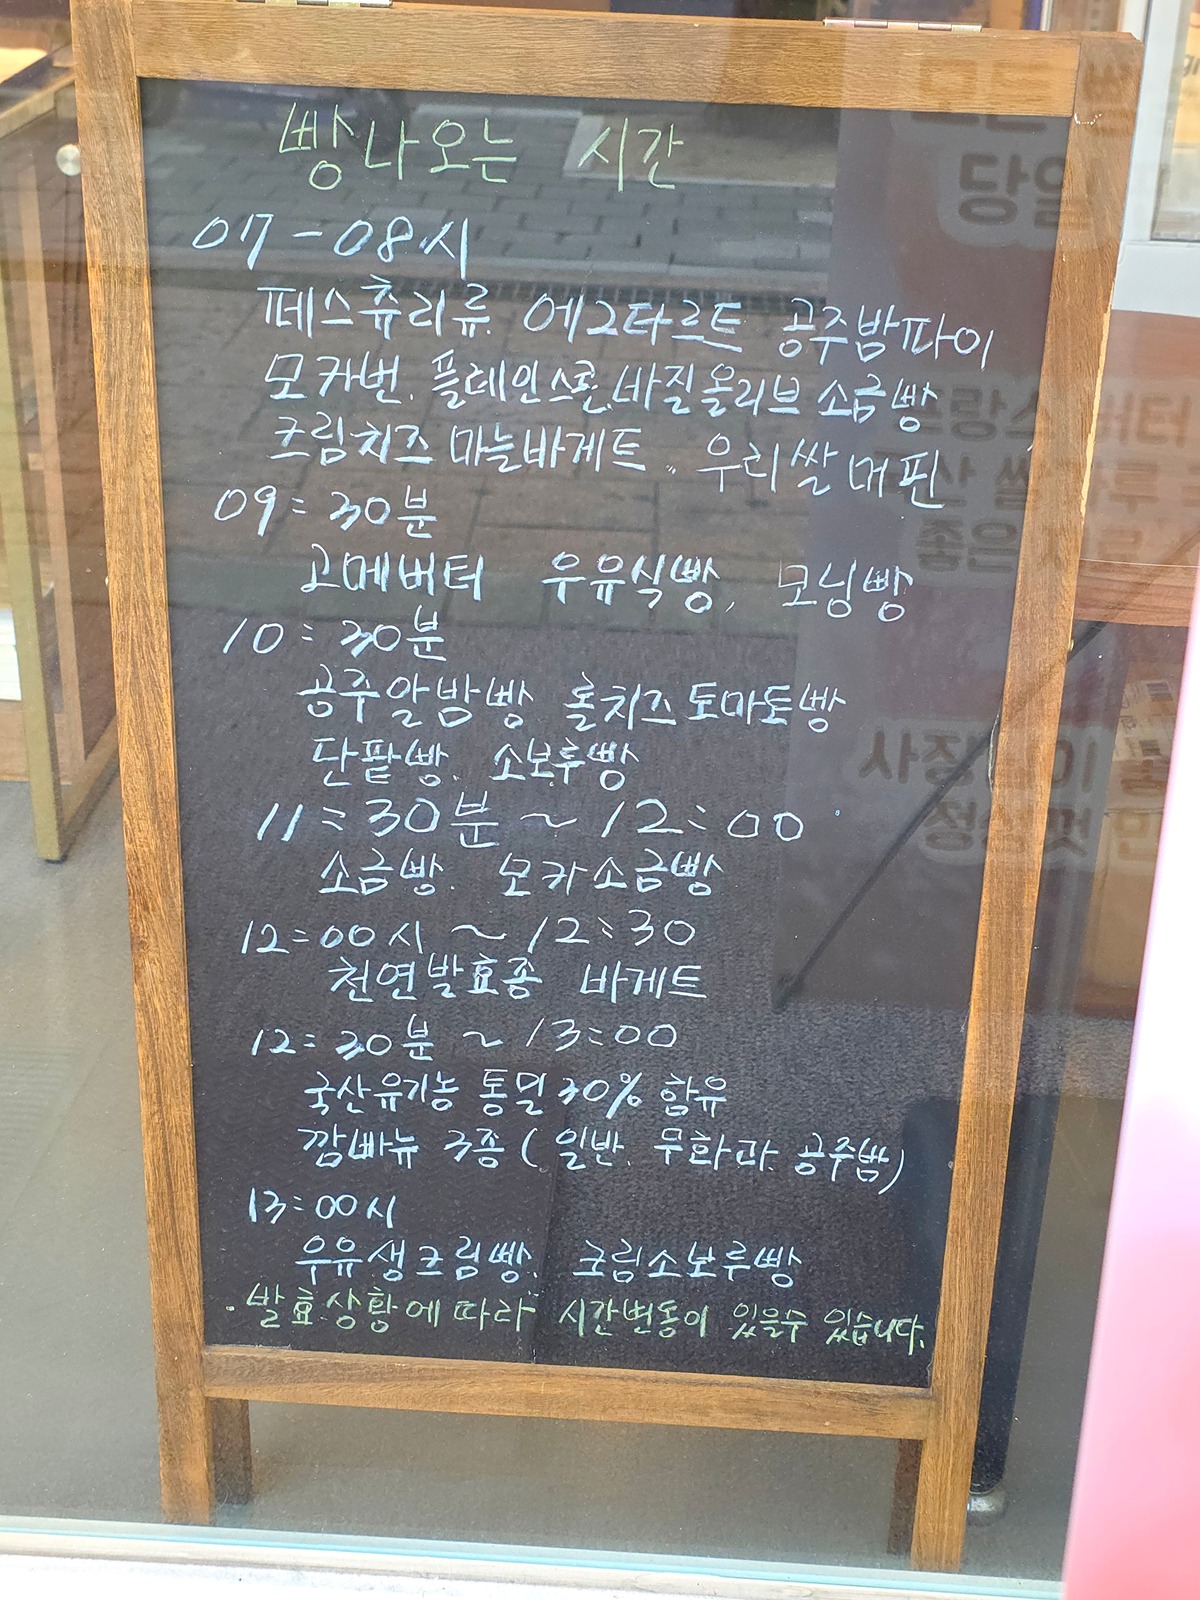 빵나오는 시간
07-08시
페스츄리류. 에그타르트 공주밤파이
모카번. 플레인스콘. 바질올리브 소금빵
크림치즈 마늘바게트. 우리쌀머핀
09:30분
고메버터 우유식빵, 모닝빵
10:30분
공주알밤빵 롤치즈토마토빵
단팥빵. 소보루빵
11:30분~12:00
소금빵. 모카소금빵
12:00시 ~12:30
천연발효종 바게트
12:30분 ~13:00
국산유기농 통밀30% 함유
깜빠뉴 3종(일반. 무화과. 공주밤)
13:00시
우유생크림빵. 크림소보루빵
·발효상황에 따라 시간변동이 있을수 있습니다.
당일
좋은